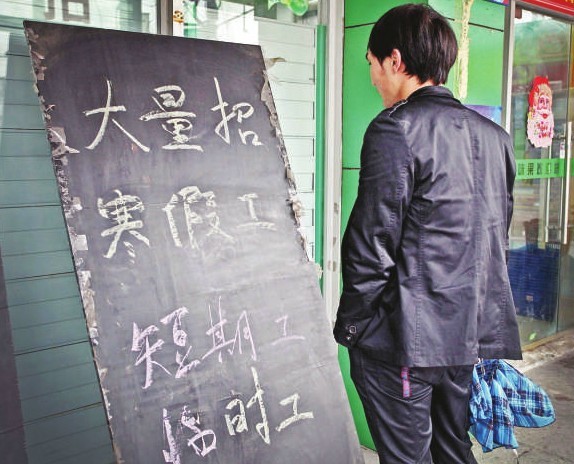 大量招
寒假工
短期工
临时工